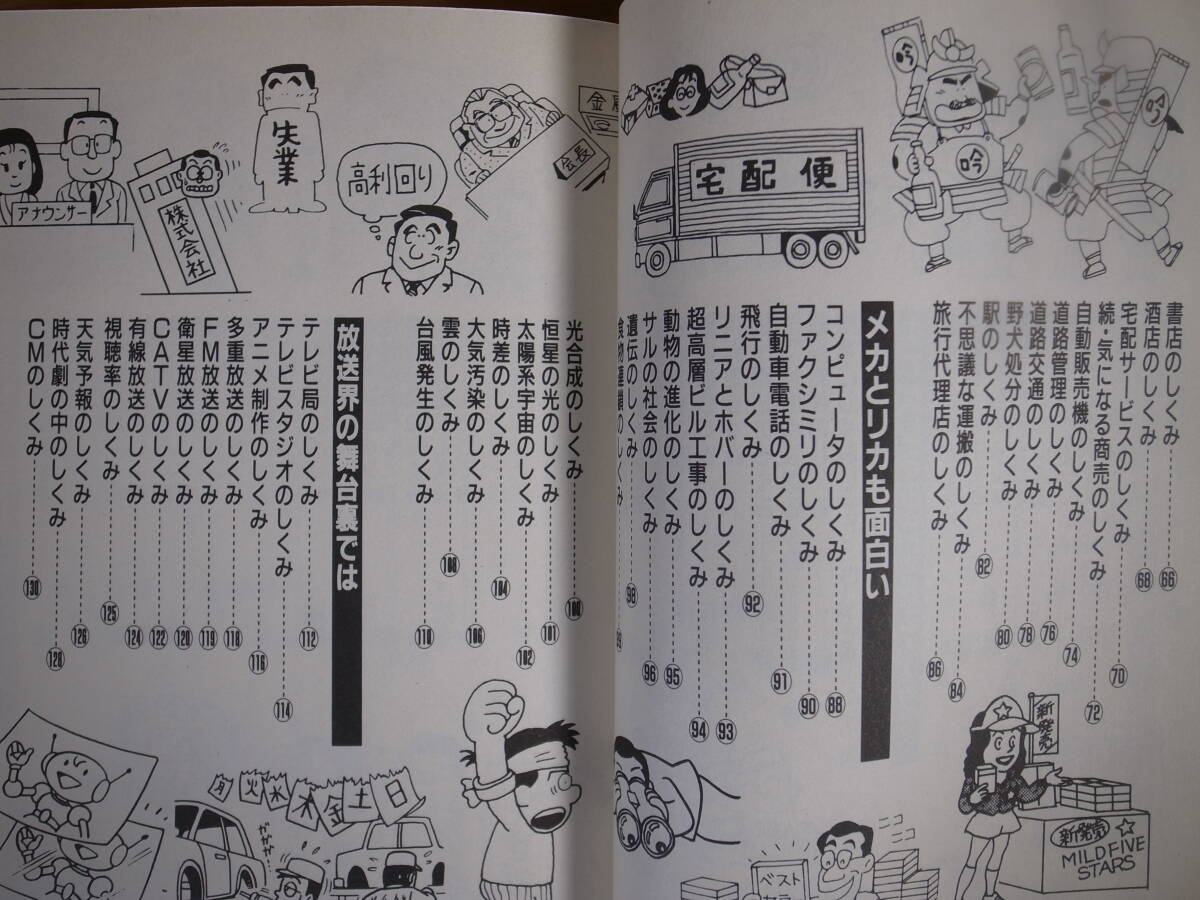 書店のしくみ 66
酒店のしくみ 68
宅配サービスのしくみ 70
続・気になる商売のしくみ 72
自動販売機のしくみ 74
道路管理のしくみ 76
道路交通のしくみ 78
野犬処分のしくみ 80
駅のしくみ 82
不思議な運搬のしくみ 84
旅行代理店のしくみ 86
メカとリカも面白い
コンピュータのしくみ 88
ファクシミリのしくみ 90
自動車電話のしくみ 91
飛行のしくみ 92
リニアとホバーのしくみ 93
超高層ビル工事のしくみ 94
動物の進化のしくみ 95
サルの社会のしくみ 96
遺伝のしくみ 98
食物連鎖のしくみ 99
光合成のしくみ 100
恒星の光のしくみ 101
太陽系宇宙のしくみ 102
時差のしくみ 104
大気汚染のしくみ 106
雲のしくみ 108
台風発生のしくみ 110
放送界の舞台裏では
テレビ局のしくみ 112
テレビスタジオのしくみ 114
アニメ制作のしくみ 116
多重放送のしくみ 118
FM放送のしくみ 119
衛星放送のしくみ 120
CATVのしくみ 122
有線放送のしくみ 124
視聴率のしくみ 125
天気予報のしくみ 126
時代劇の中のしくみ 128
CMのしくみ 130
吟
吟
吟
宅配便
会長
高利回り
失業
株式会社
アナウンサー
新発売
新発売
MILD FIVE
STARS
ベスト
月
火
水
木
金
土
日
ガガガ